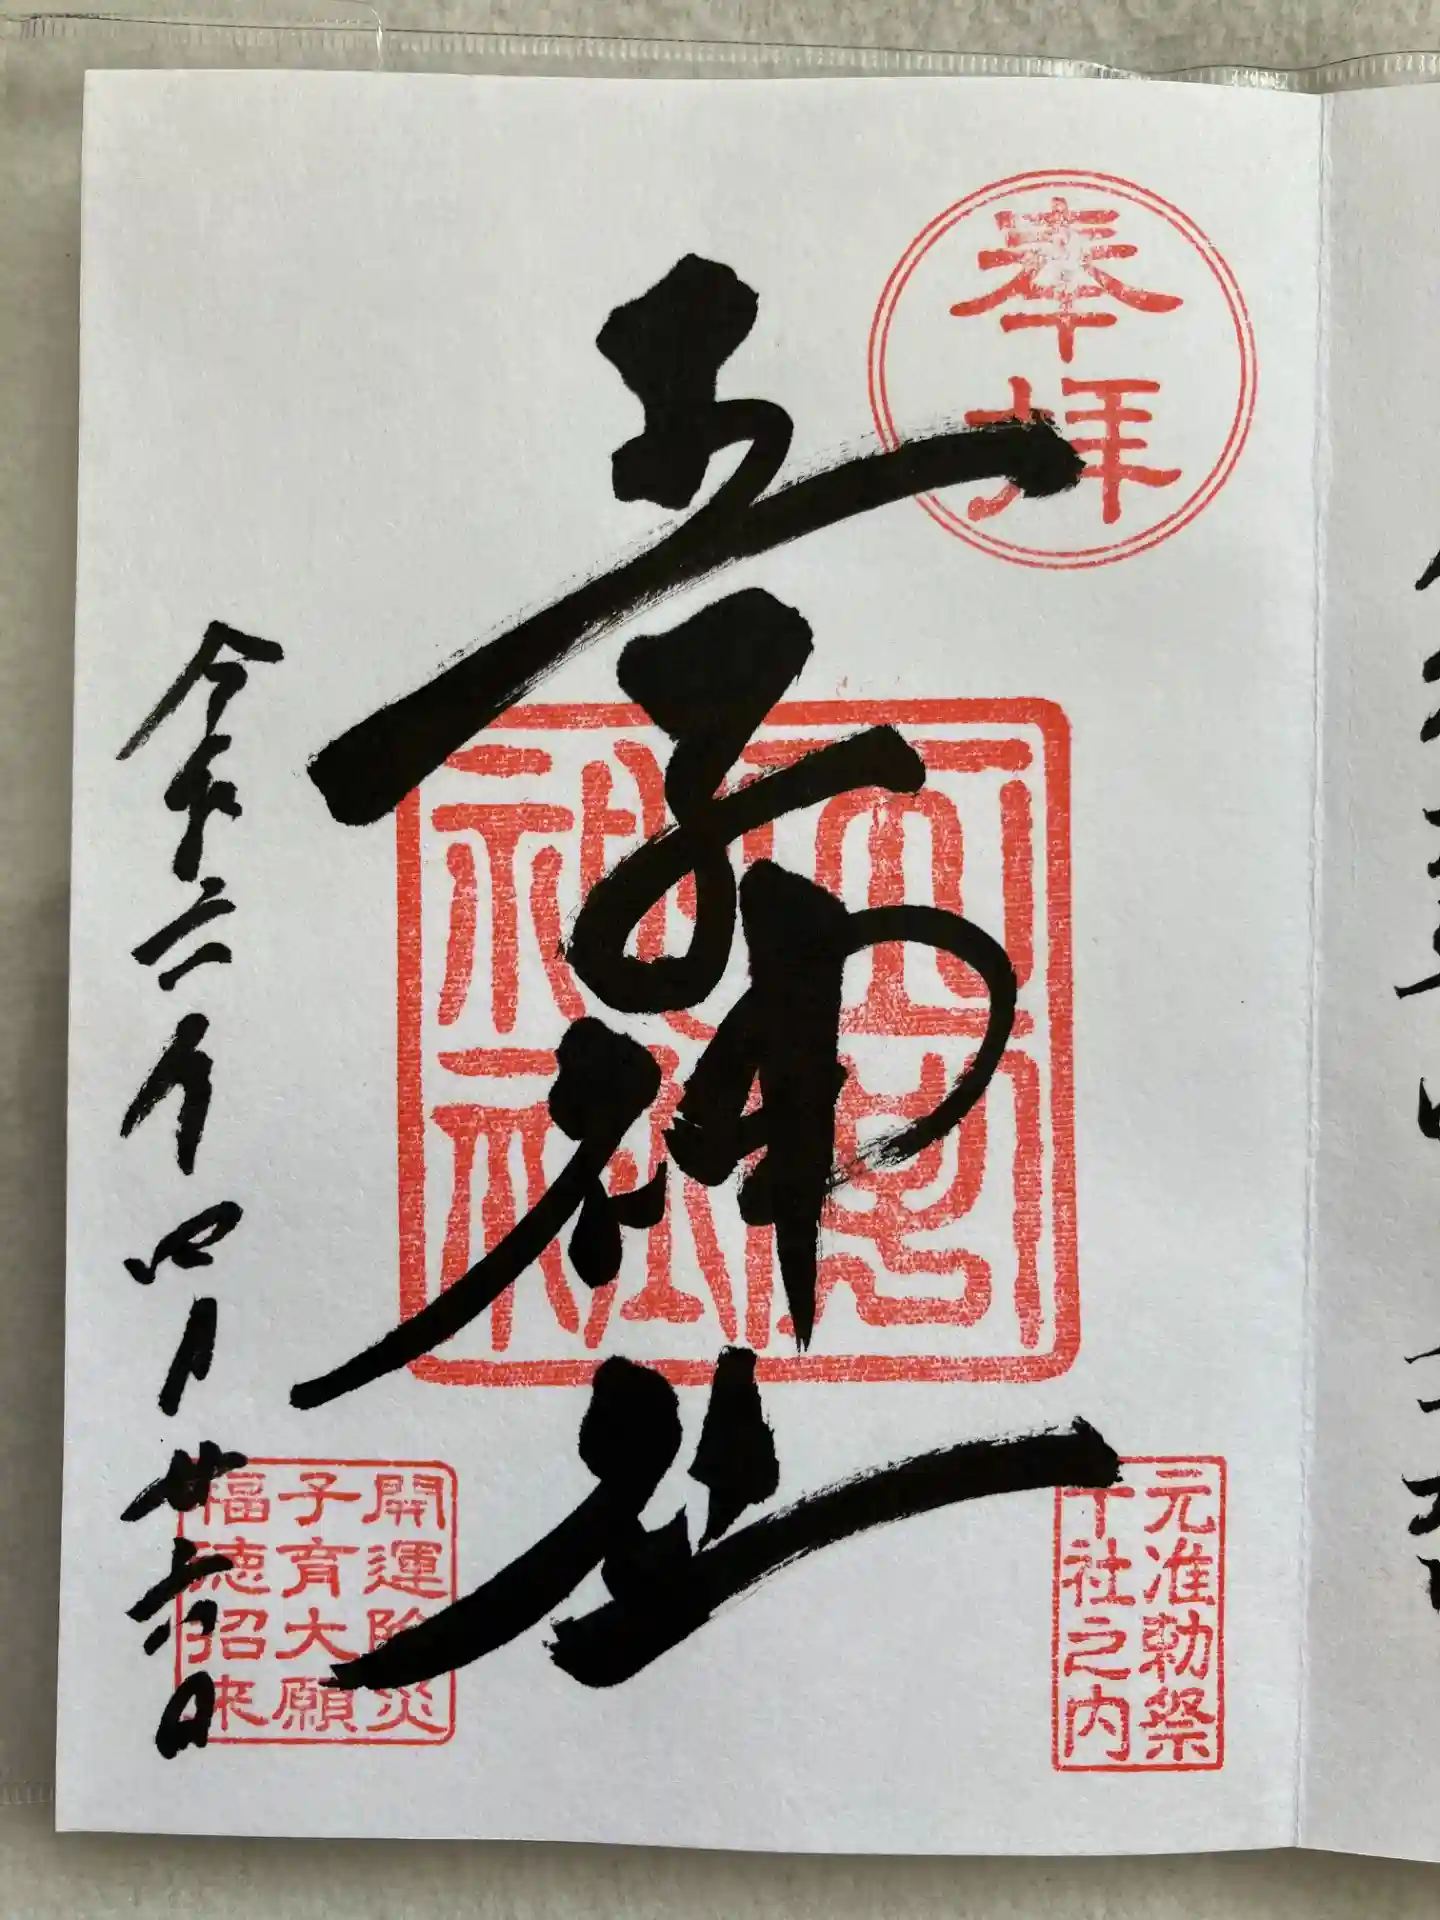 奉拝
王子神社
元准勅祭
十社之内
開運除災
子育大願
福徳招来
令和六年四月廿六日